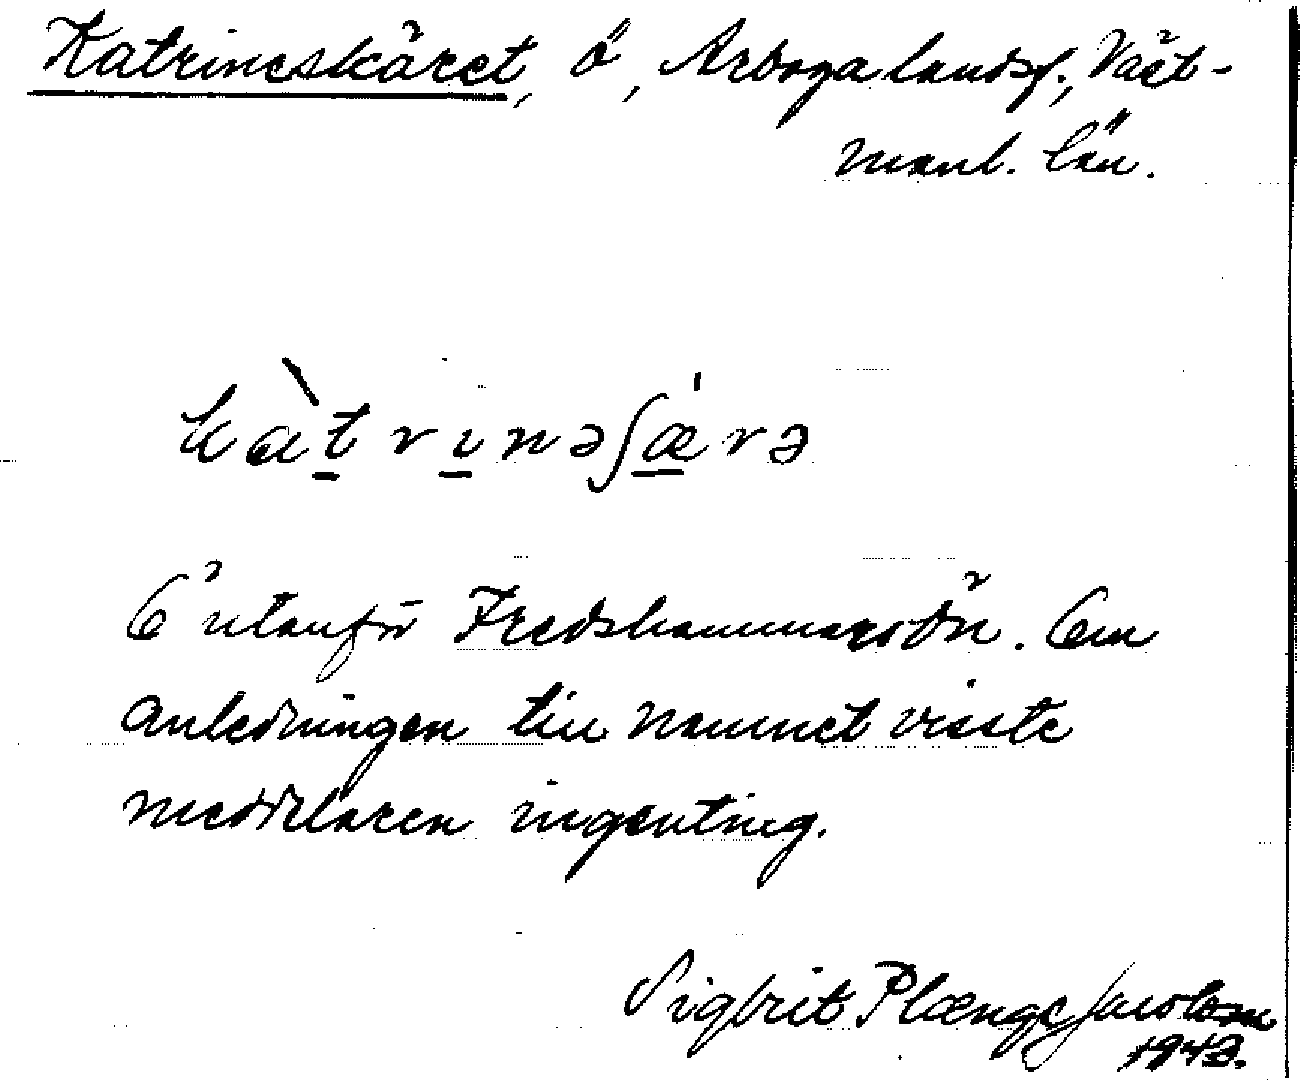 Katrineskäret, ö, Arboga landsf., Väst-
manl. län.
kàtrɩnəʃæ̍rə
Ö utanför Fredshammarsön. Om
anledningen till namnet visste
meddelaren ingenting.
Sigbrit Plænge Jacobson
1943.